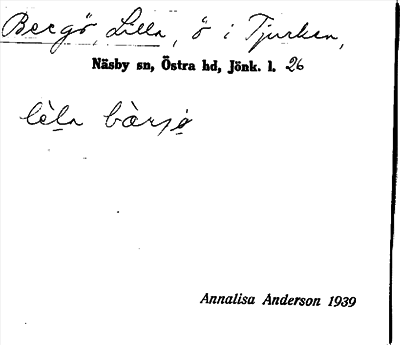 Bergö, Lilla, ö i Tjurken,
Näsby sn, Östra hd, Jönk. l. 26
lèla bàrjö
Annalisa Anderson 1939